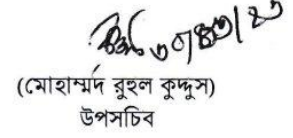 (মোহাম্মদ রুহুল কুদ্দুস)
উপসচিব